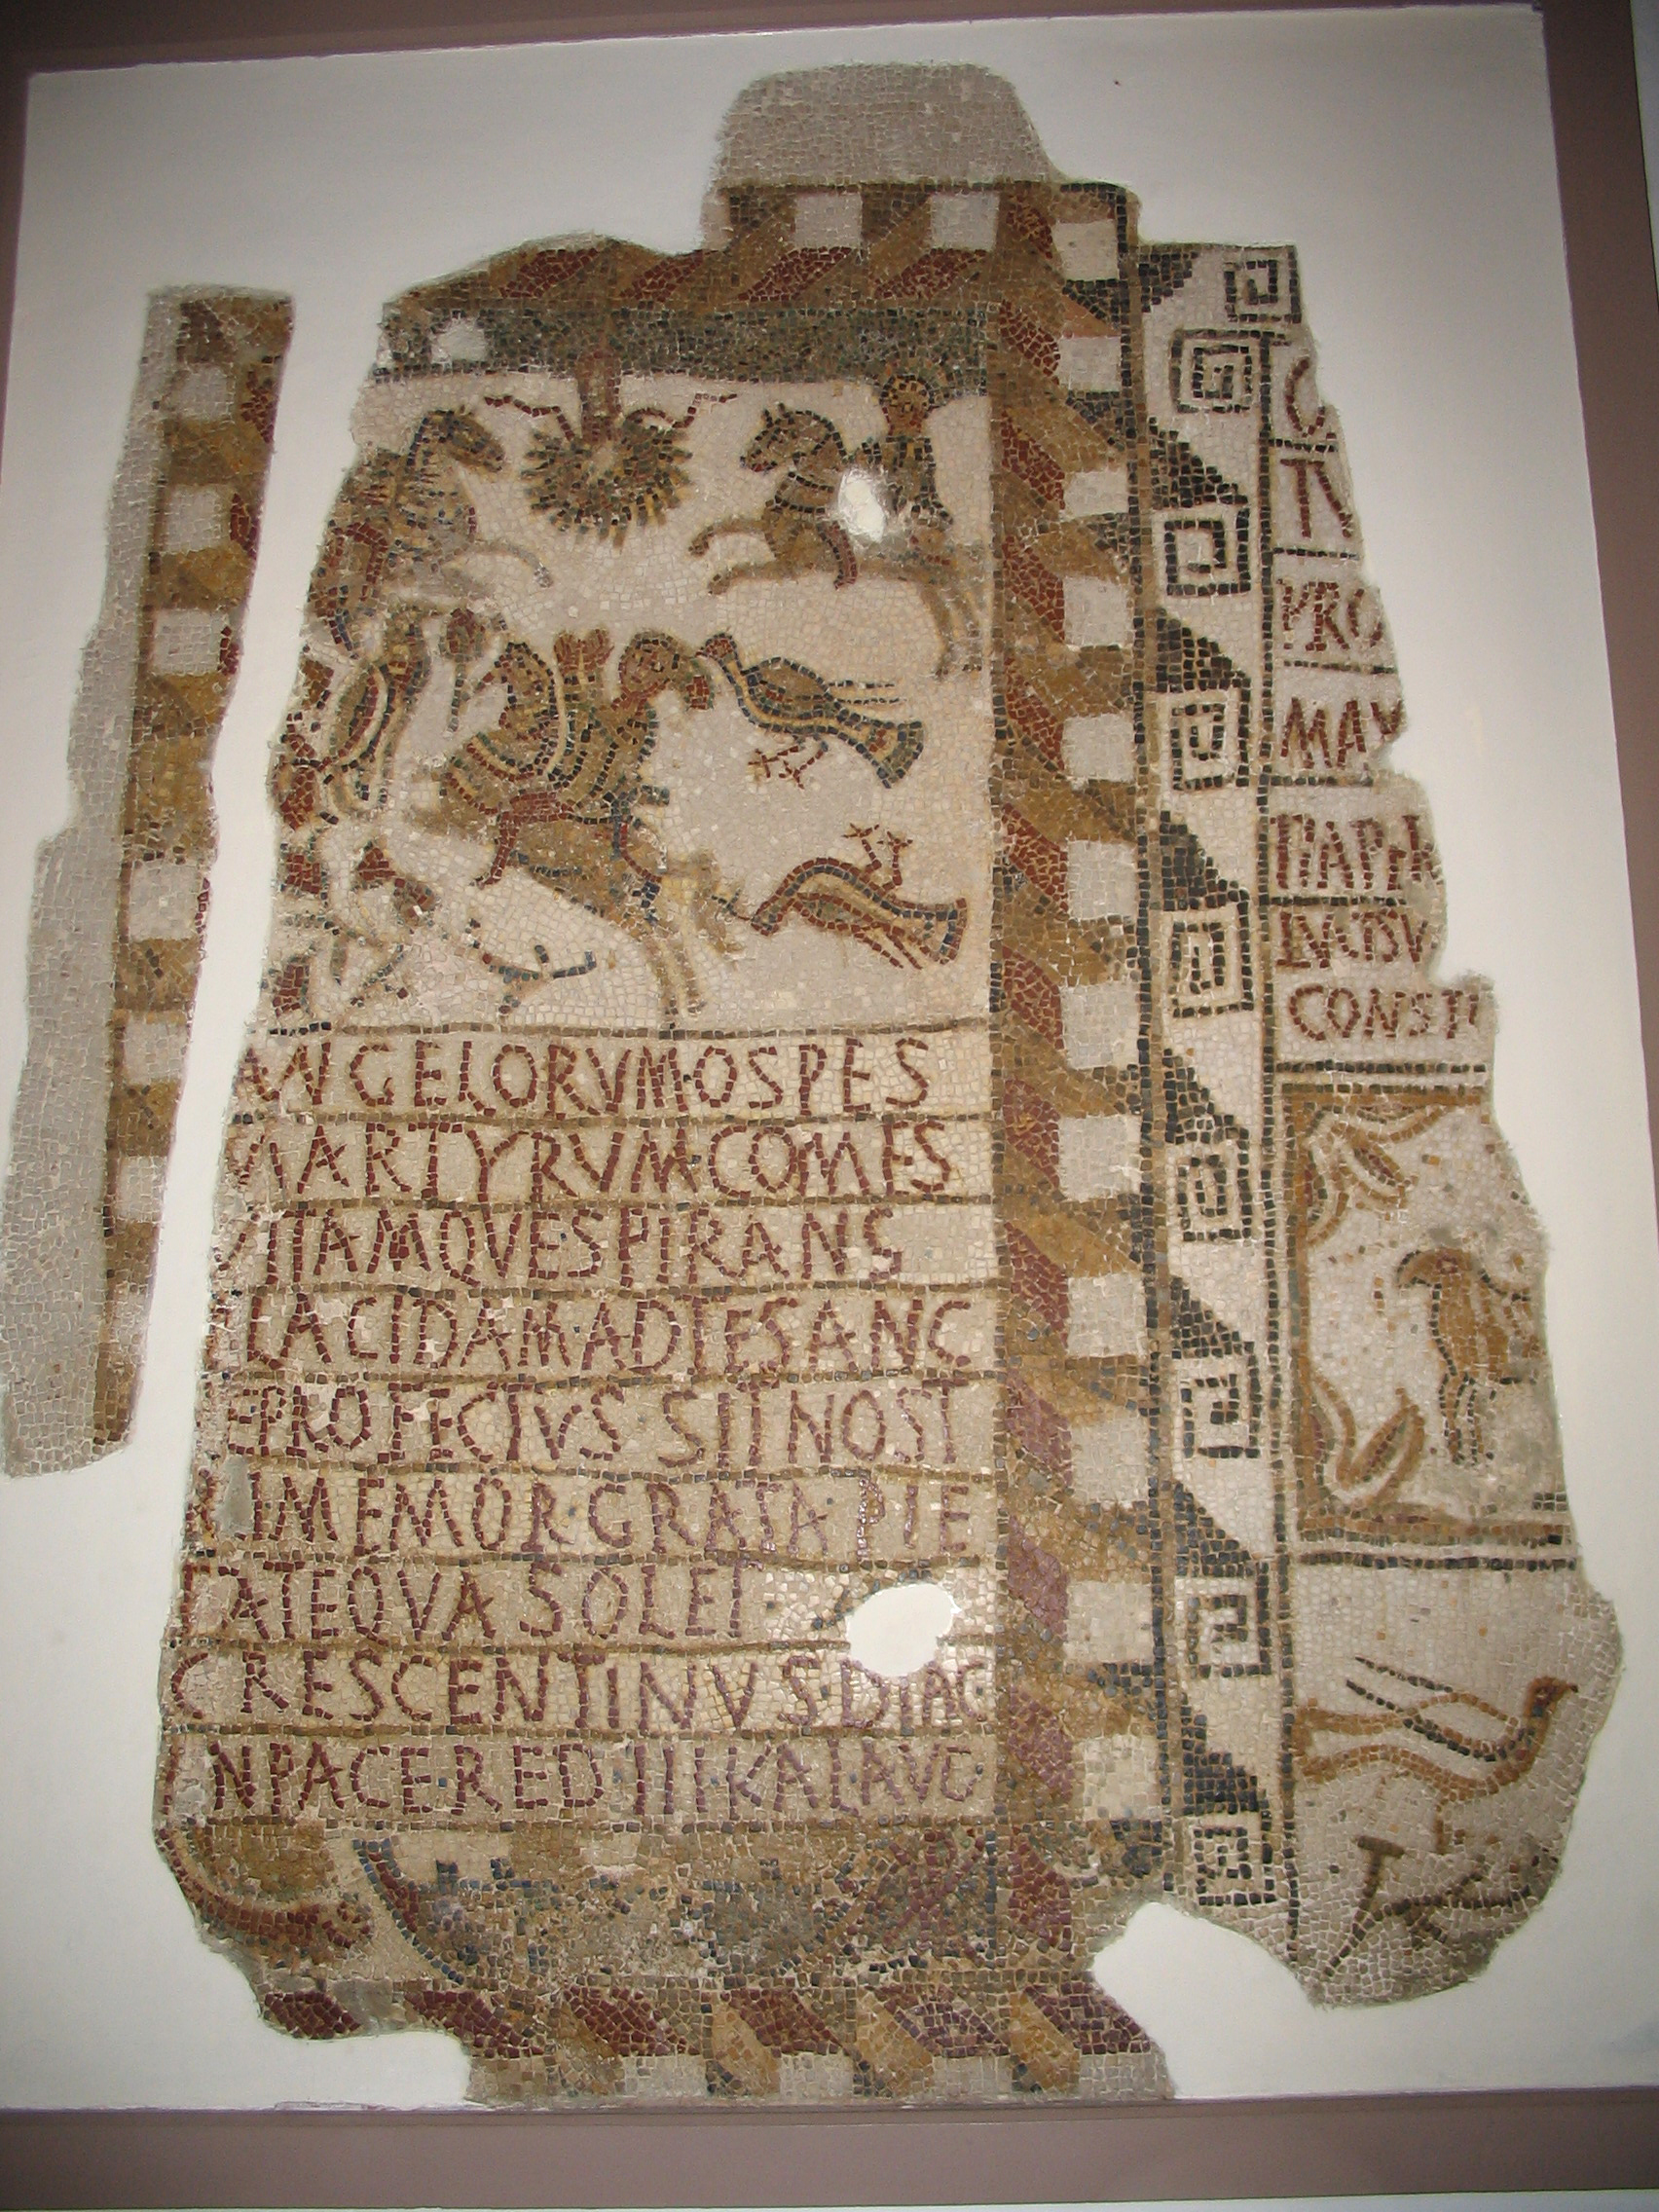 ANGELORVMOSPES
MARTYRVMCOMES
VITAMQVESPIRANS
PLACIDAMADIESANC
EPROFECTVS SITNOST
RIMEMORGRATAPIE
TATEQVA SOLET
CRESCENTINVS·DIAC
NPACERED III·KAL·AVG
PRO
MAV
CONSTI